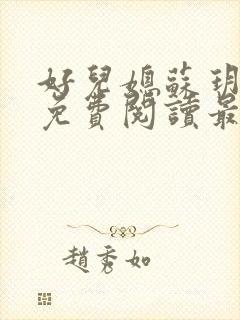 好兒媳蘇玥
免費閱讀最
趙秀如